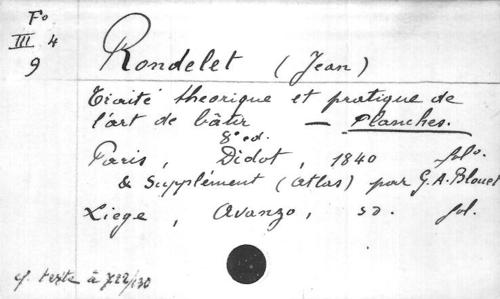 Fo
III 4
9
Rondelet (Jean)
Traité theorique et pratique de
l'art de bâtir — Planches.
8e ed.
Paris, Didot, 1840 folo.
& Supplément (atlas) par G.A. Blouet
Liege, Avanzo, sd. fol.
cf. texte à